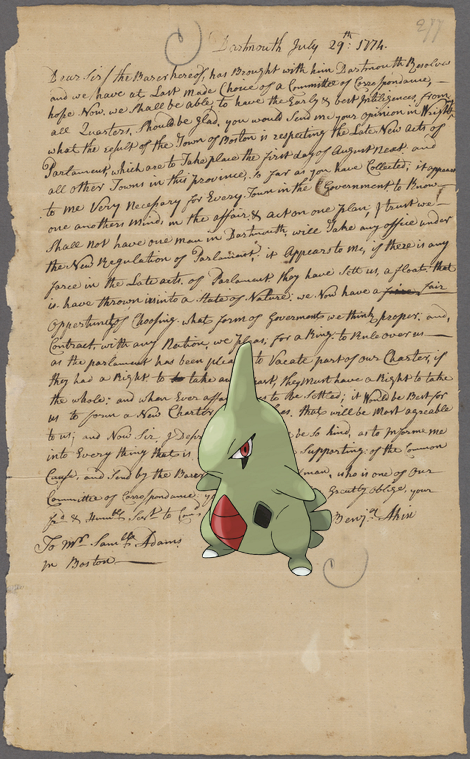 277
Dartmouth July 29th. 1774.
Dear Sir/ the Barer hereof, has Brought with him Dartmouth Resolves
and we have at Last Made Choice of a Committee of Correspondence,
hope Now, we shall be able, to have the Early & best Intiligences, from
all Quarters, Should be Glad, you would Send me your opinion in Wrighting
what the result of the Town of Boston is respecting the Late New Acts of
Parliament, which are to Take place the first day of August Next and
all other Towns in this province, So far as you have Collected; it appears
to me Very Necessary for Every Town in the Government to Know
one anothers Mind, in the affair, & act on one plan, I trust we
Shall not have one man in Dartmouth, will Take any office under
the New Regulation of Parliament, it Appears to me, if there is any
force in the Late acts, of Parliament they have Sett us, a float that
is have thrown us into a State of Nature; we Now have a fair
Opportunity of Choosing what form of Goverment we think proper, and,
Contract, with any Nation, we pleas, for a King to Rule over us
as the parlament has been to Vacate part of our Charter, if
they had a Right to take part, they Must have a Right to take
the whole; and when Ever to be Settled; it Would be Best for
us to form a New Charter that will be Most agreable
to us; and Now Sir I be So kind, as to Informe me
into Every thing that is Supporting of the Common
Cause, and Send by the Barer who is one of Our
Committee of Correspondence Greatly Oblige, your
Fd. & Humble Servt. to
Benja. Akin
To Mr. Samll. Adams
in Boston